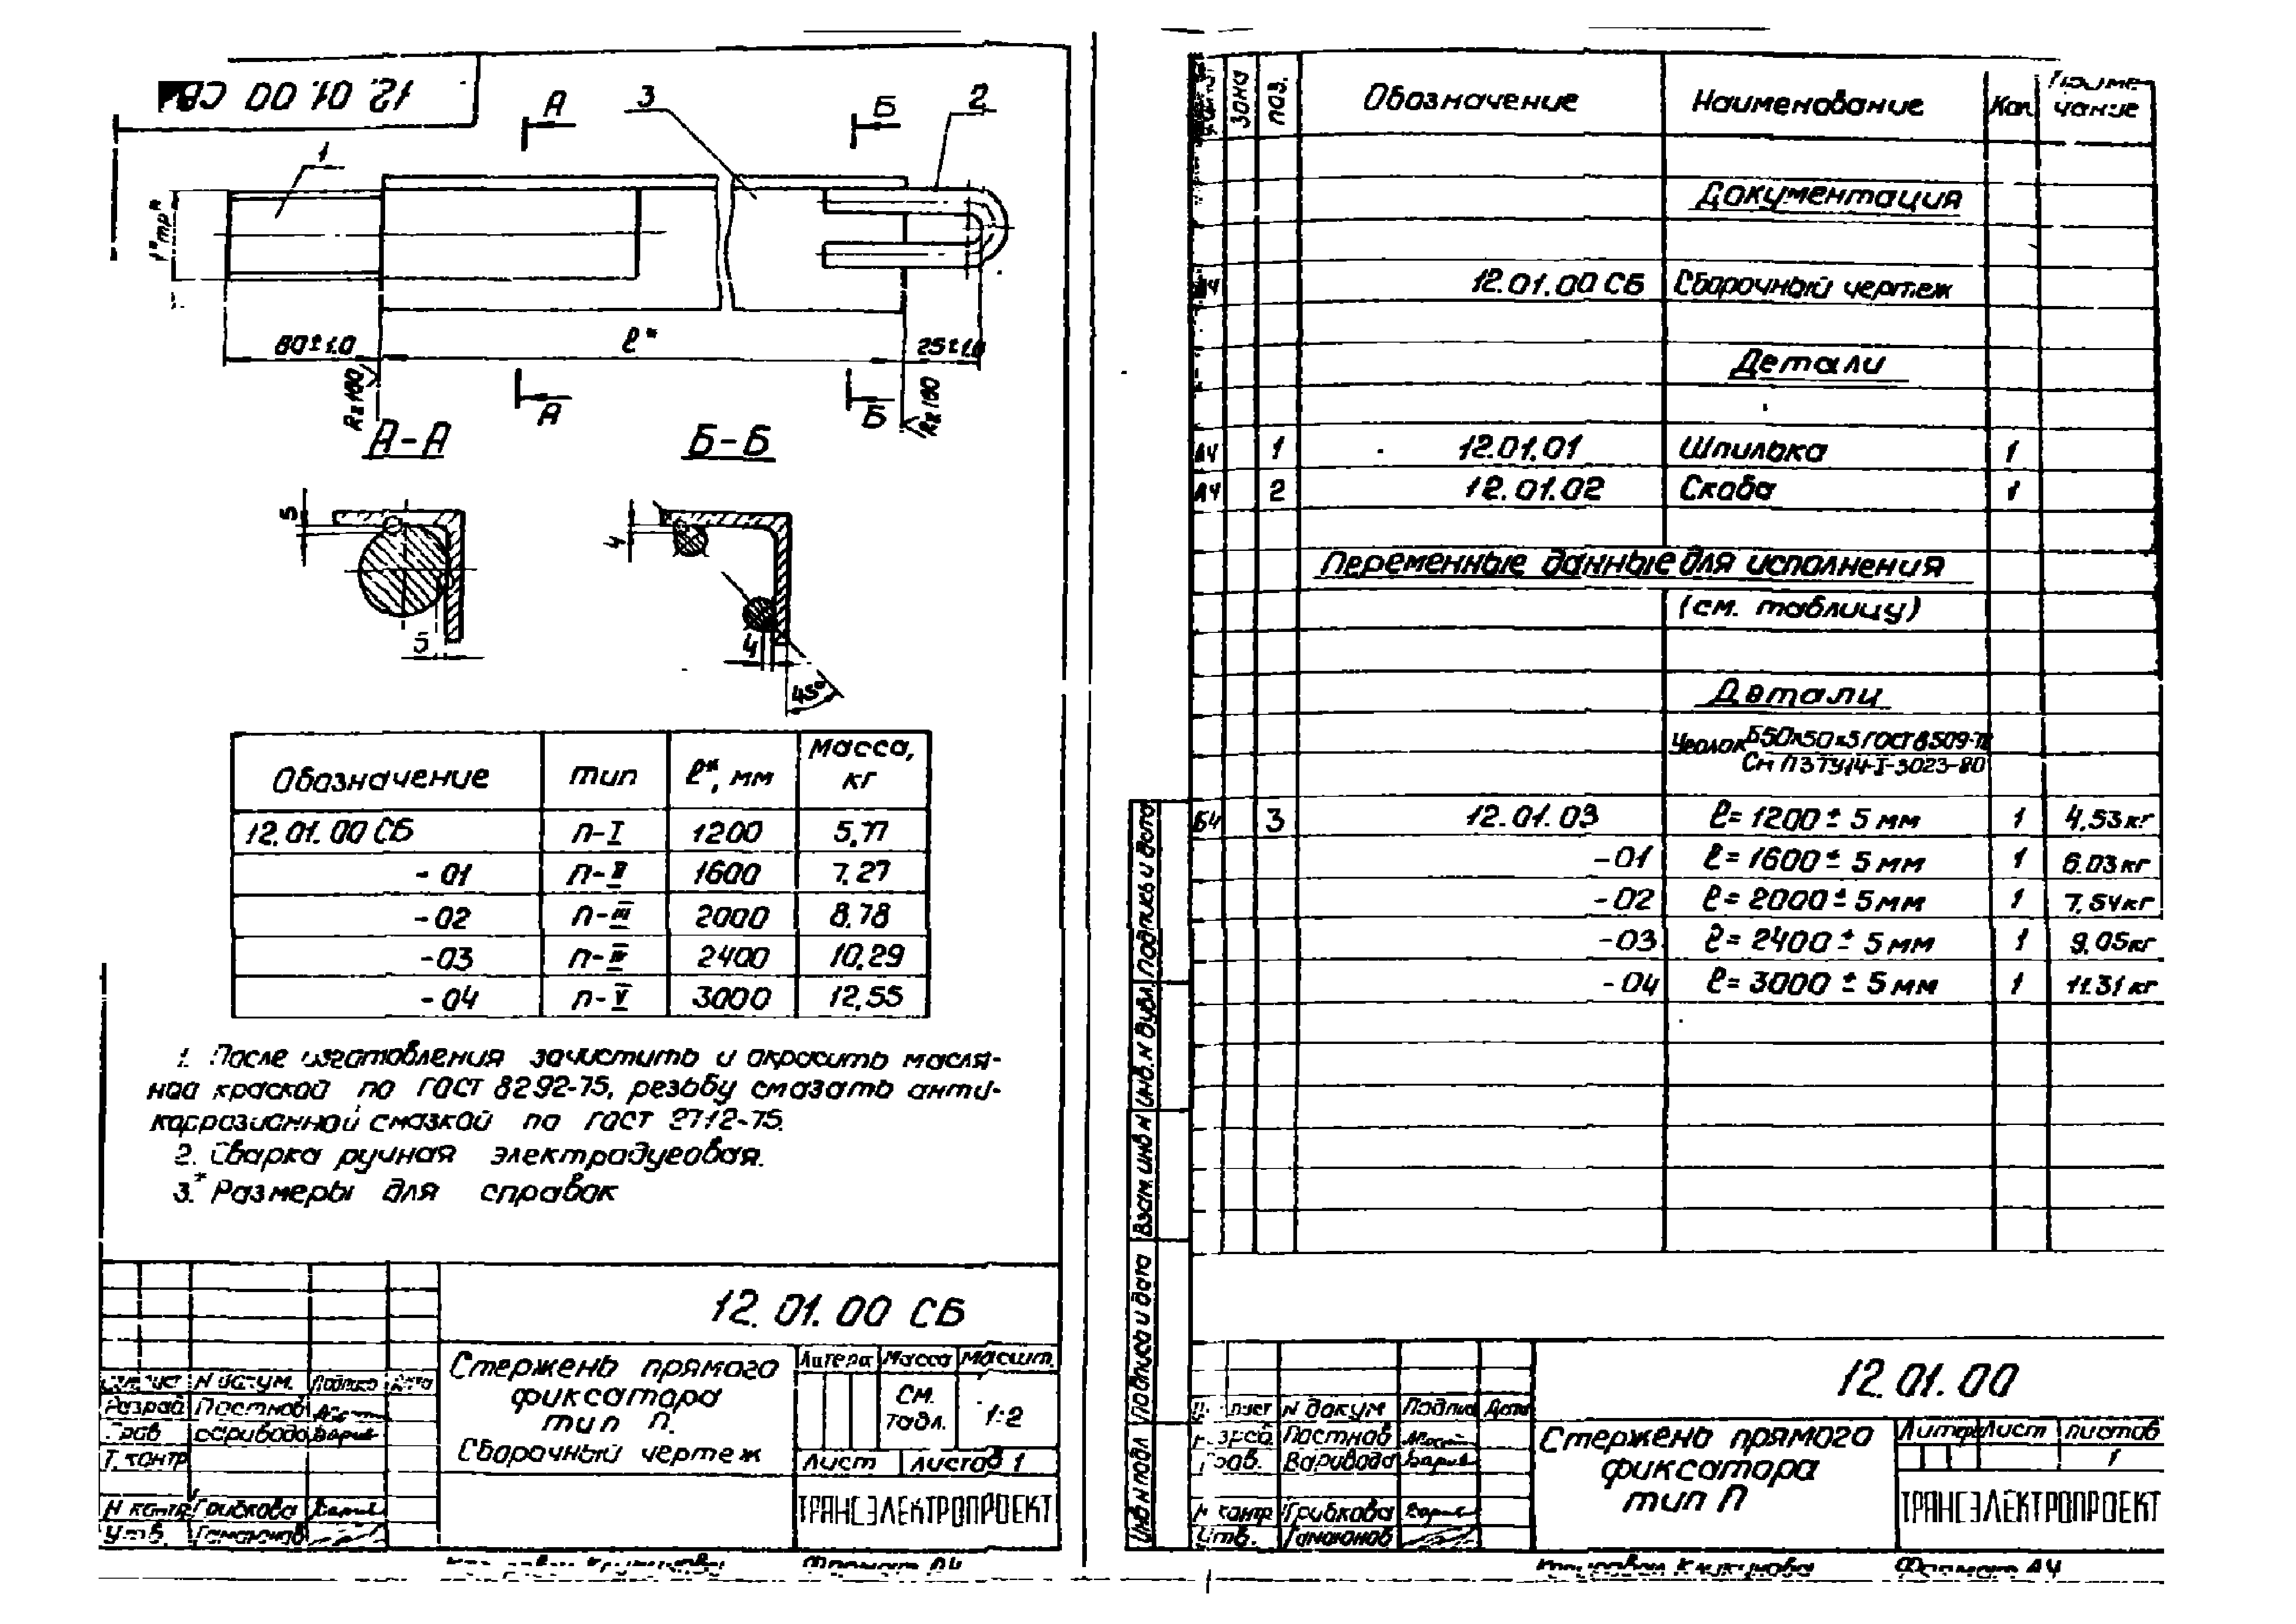 12.01.00 СБ
А
3
Б
2
1
1"тр*
60±1.0
ℓ*
25±1.0
Rz 160
А
Б
Rz 160
А-А
Б-Б
5
4
5
4
45°
Обозначение тип ℓ*, мм Масса, кг
12.01.00 СБ п-I 1200 5,77
-01 п-II 1600 7,27
-02 п-III 2000 8,78
-03 п-IV 2400 10,29
-04 п-V 3000 12,55
1. После изготовления зачистить и окрасить масля-
ной краской по ГОСТ 8292-75, резьбу смазать анти-
коррозионной смазкой по ГОСТ 2712-75.
2. Сварка ручная электродуговая.
3.* Размеры для справок
12.01.00 СБ
Стержень прямого
фиксатора
тип п.
Сборочный чертеж
Литера Масса Масшт.
См. табл. 1:2
Лист Листов 1
ТРАНСЭЛЕКТРОПРОЕКТ
лист N докум. Подпись Дата
Разраб Постнов
Т. контр
Н контр Грибкова
Утв.
Формат А4
Зона поз. Обозначение Наименование Кол Приме-
чание
Документация
12.01.00 СБ Сборочный чертеж
Детали
А4 1 12.01.01 Шпилька 1
А4 2 12.01.02 Скоба 1
Переменные данные для исполнения
(см. таблицу)
Детали
Уголок Б50х50х5 ГОСТ 8509-72
Ст ПЗ ТУ14-I-3023-80
Б4 3 12.01.03 ℓ= 1200 ± 5 мм 1 4.53 кг
-01 ℓ= 1600 ± 5 мм 1 6.03 кг
-02 ℓ= 2000 ± 5 мм 1 7.54 кг
-03 ℓ= 2400 ± 5 мм 1 9.05 кг
-04 ℓ= 3000 ± 5 мм 1 11.31 кг
Инв N подл Подпись и дата Взам. инв N Инв. N дубл Подпись и дата
12.01.00
Стержень прямого
фиксатора
тип П
Литера Лист Листов
1
ТРАНСЭЛЕКТРОПРОЕКТ
лист N докум Подпись Дата
Разраб. Постнов
Пров. Варивода
Н контр Грибкова
Утв.
Формат А4